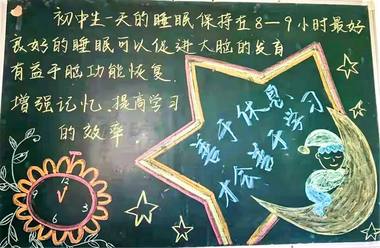 初中生一天的睡眠保持在8—9小时最好
良好的睡眠可以促进大脑的发育
有益于脑功能恢复.
增强记忆、提高学习
的效率.
善于休息
才会善于学习
6 3